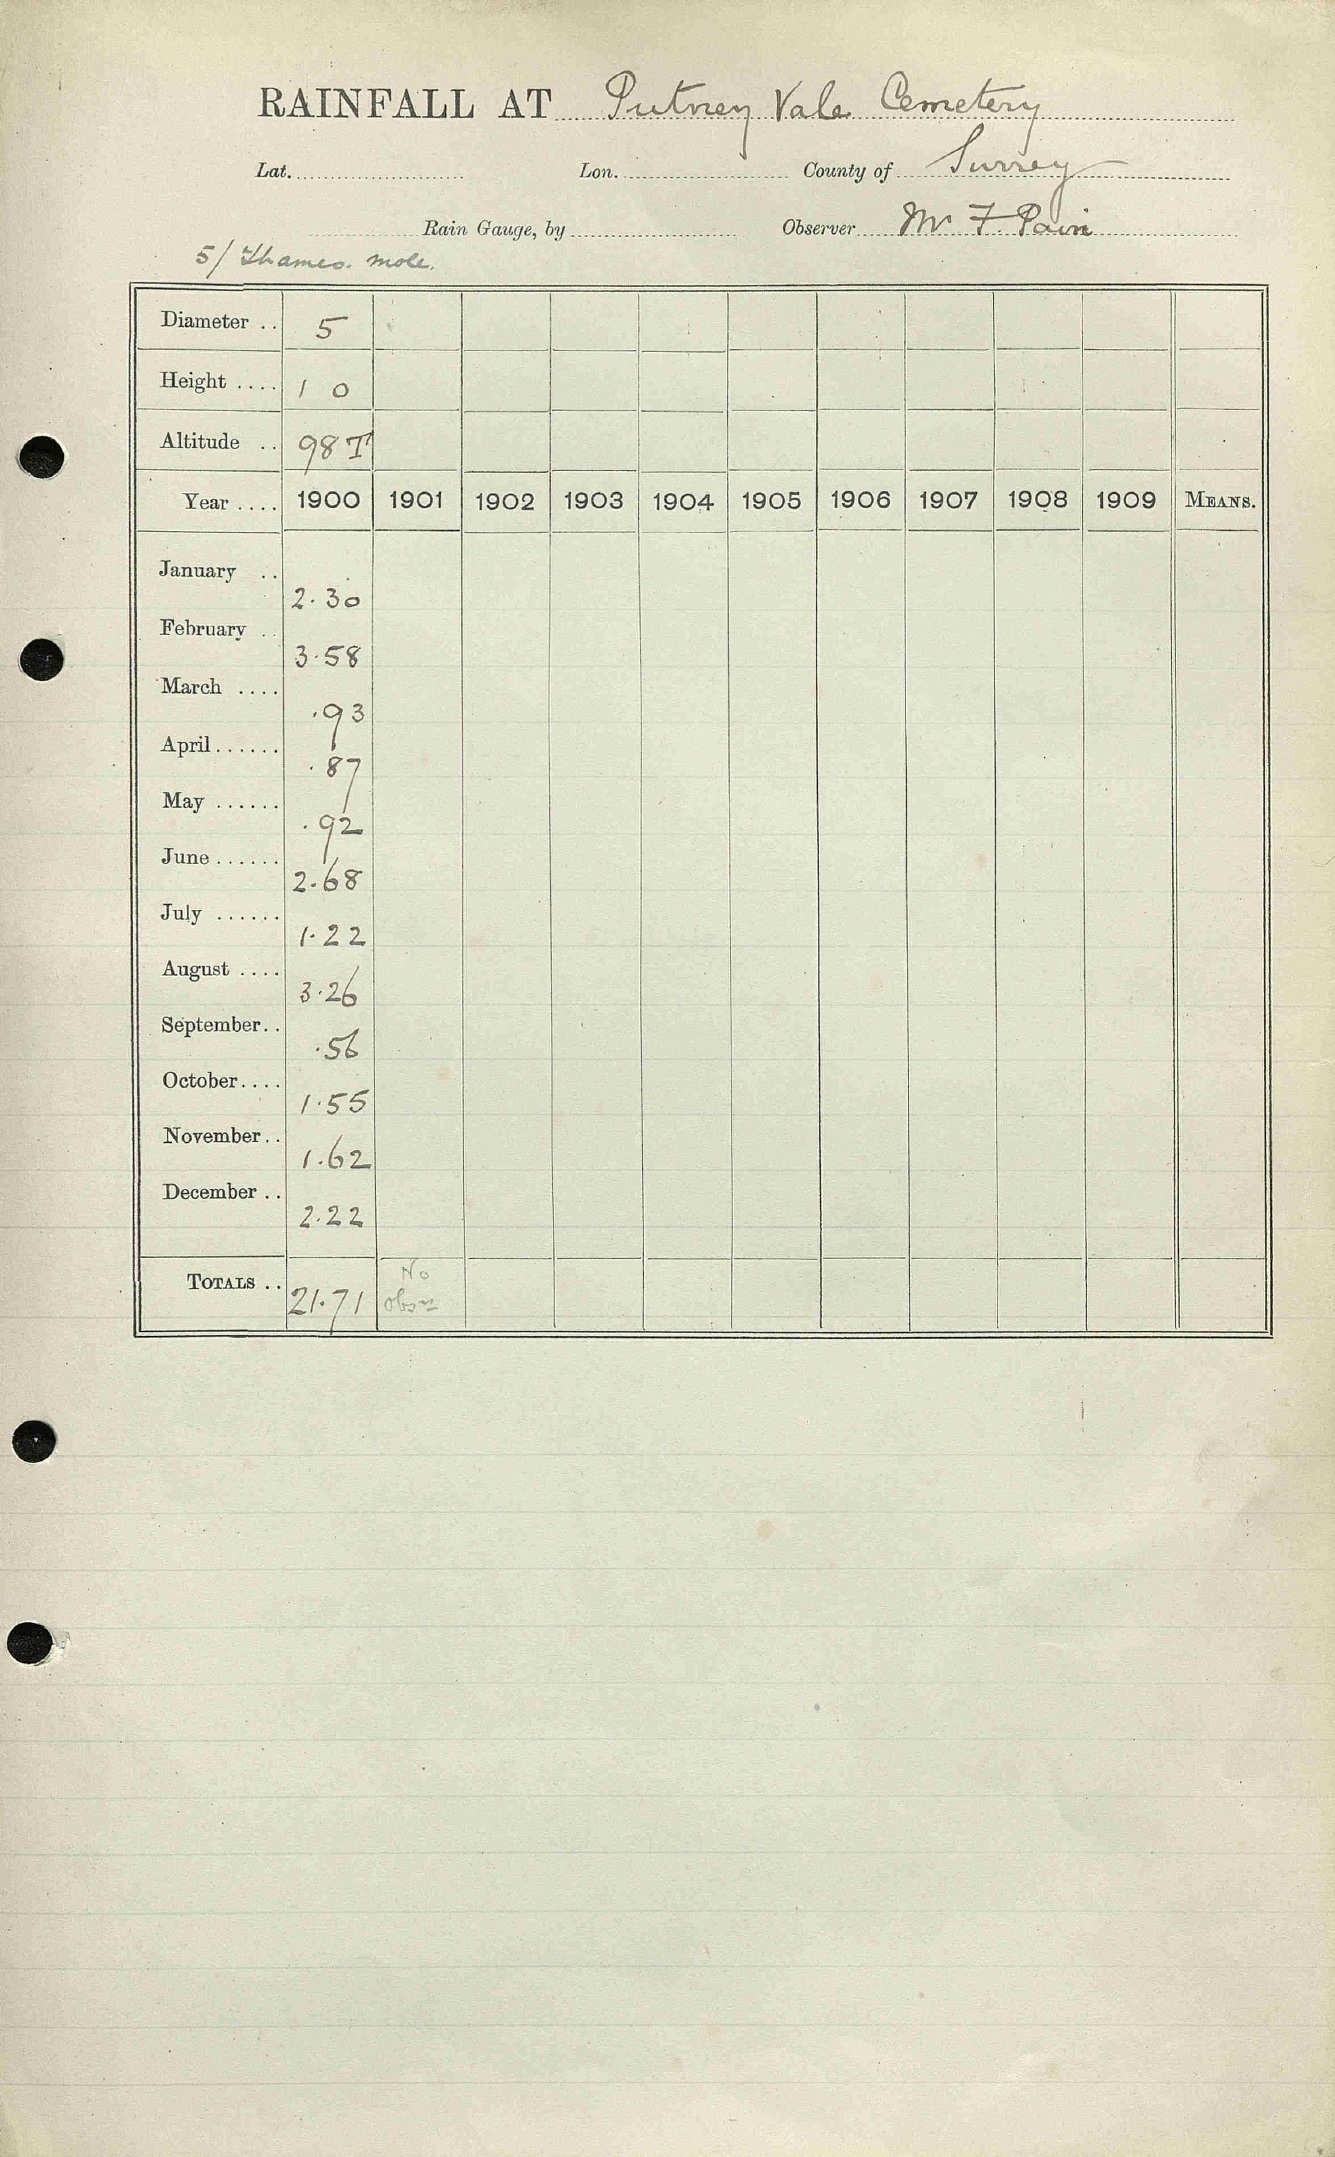 RAINFALL AT Putney Vale Cemetery
Lat. Lon. County of Surrey
Rain Gauge, by Observer Mr F. Pain
5/ Thames. Mole.
Diameter .. 5
Height .... 1 0
Altitude .. 98 T
Year .... 1900 1901 1902 1903 1904 1905 1906 1907 1908 1909 MEANS.
January .. 2.30
February .. 3.58
March .... .93
April...... .87
May ...... .92
June...... 2.68
July ...... 1.22
August .... 3.26
September.. .56
October.... 1.55
November.. 1.62
December .. 2.22
TOTALS .. 21.71 No obsns